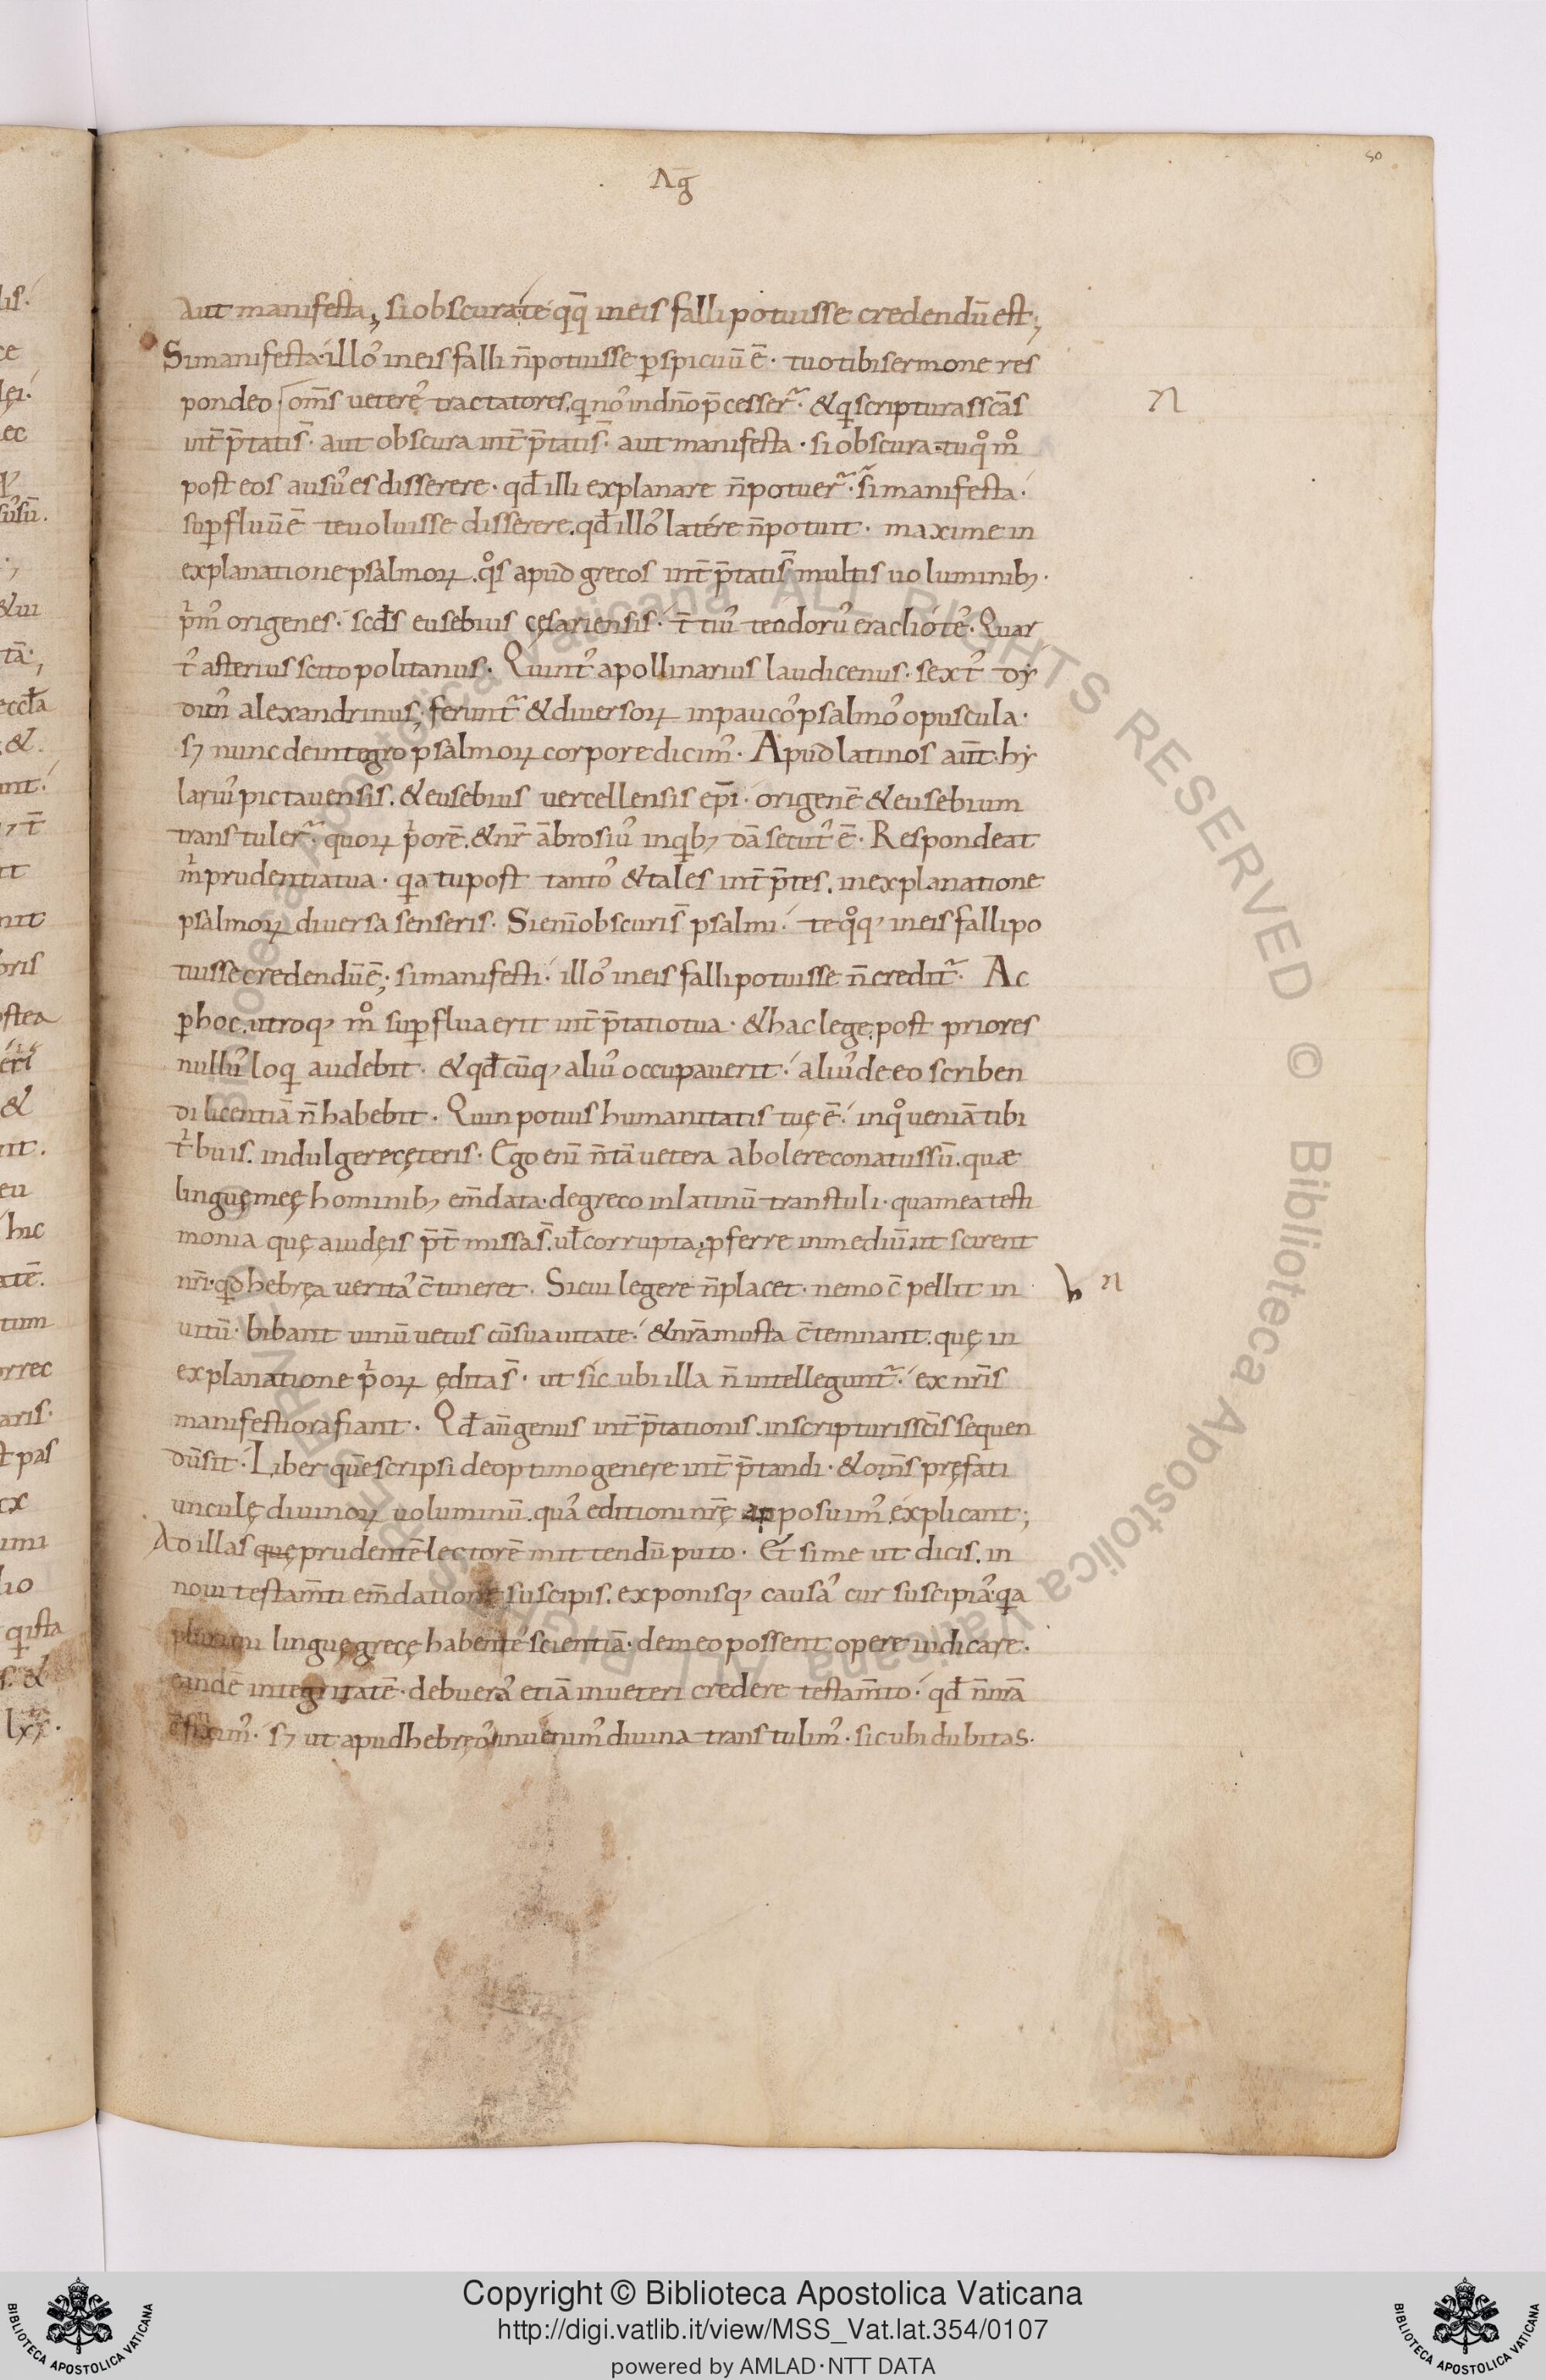 Aḡ
50
Aut manifesta, si obscura té qq̄ in eis falli potuisse credendū est;
Si manifesta illoʼ in eis falli n̄ potuisse ꝑspicuū ē. tuo tibi sermone res
pondeo om̄s uetereʼ tractatores. qi noʼ in dn̄o p̄cesserˉ. & qi scripturas sc̄as
int̄p̄tatis̄. aut obscura int̄p̄tatis̄. aut manifesta. si obscura. tu qͦ mͦ
post eos ausuʼ es disserere. qđ illi explanare n̄ potuerˉ. si manifesta.
supfluū ē te uoluisse disserere. qđ illoʼ latére n̄ potuit. maxime in
explanatione psalmoꝝ. qͦs apud grecos int̄p̄tatis̄ multis uoluminibꝫ.
pimʼ origenes. scđs eusebius cęsariensis. t̄tiuʼ teodoruʼ eraclioteʼ. Quar
tʼ asterius scitopolitanus. Quintʼ apollinarius laudicenus. sextʼ dy
dimʼ alexandrinus; feruntˉ & diuersoꝝ in paucoʼ psalmoʼ opuscula.
sꝫ nunc de integro psalmoꝝ corpore dicimʼ. Apud latinos aūt. hy
lariuʼ pictauensis. & eusebius uercellensis ep̄i. origenē & eusebium
transtulerˉ. quoꝝ piorē. & nr̄ ābrosiuʼ in qibꝫ dā secutʼ ē. Respondeat
mi prudentia tua. qia tu post tantoʼ & tales int̄p̄tes. in explanatione
psalmoꝝ diuersa senseris. Si enī obscuri s̄ psalmi. te qͦqꝫ in eis falli po
tuisse credendū ē; si manifesti. illoʼ in eis falli potuisse n̄ creditˉ. Ac
ꝑ hoc. utroqꝫ mͦ supflua erit int̄p̄tatio tua. & hac lege. post priores
nulluʼ loqi audebit. & qđ cūqꝫ aliuʼ occupauerit. aliuʼ de eo scriben
di licentiā n̄ habebit. Quin potius humanitatis tuę ē. in qͦ ueniā tibi
tibuis. indulgere cęteris. Ego enī n̄ tā uetera abolere conatus sū. quæ
linguę meę hominibꝫ em̄data. de greco in latinū transtuli. quam ea testi
monia quę a iudęis p̄t̄missa s̄. ul̄ corrupta. ꝓferre in mediū. ut scirent
nr̄i. qid hebręa ueritaʼ c̄tineret. Si cui legere n̄ placet. nemo c̄pellit in
uitū. bibant uinū uetus cū suauitate. & nr̄a musta c̄temnant. quę in
explanatione pioꝝ ędita s̄. ut sicubi illa n̄ intelleguntˉ. ex nr̄is
manifestiora fiant. Qđ aū genus int̄p̄tationis. in scripturis sc̄is sequen
dū sit. Liber quē scripsi de optimo genere int̄p̄tandi. & om̄s pręfati
unculę diuinoꝝ uoluminū. quaʼ editioni nr̄ę apposuimʼ. explicant;
Ad illas quę prudentē lectorē mittendū puto. Et si me ut dicis. in
noui testam̄ti em̄datione suscipis. exponisqꝫ causaʼ cur suscipiaʼ. qia
plurimi linguę grecę habenteʼ scientiā. de meo possent opere iudicare.
eandē integritatē. debueraʼ etiā in ueteri credere testam̄to. qđ n̄ nr̄a
c̄fiximʼ. sꝫ ut apud hebręoʼ inuenimʼ diuina transtulimʼ. sicubi dubitas.
Copyright © Biblioteca Apostolica Vaticana
http://digi.vatlib.it/view/MSS_Vat.lat.354/0107
powered by AMLAD·NTT DATA
BIBLIOTECA APOSTOLICA VATICANA
BIBLIOTECA APOSTOLICA VATICANA